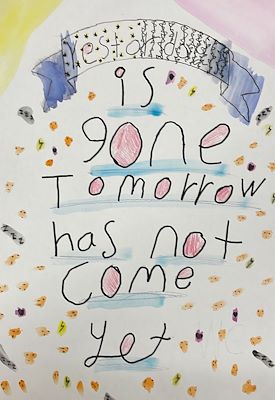 is
gone
Tomorrow
has not
come
yet